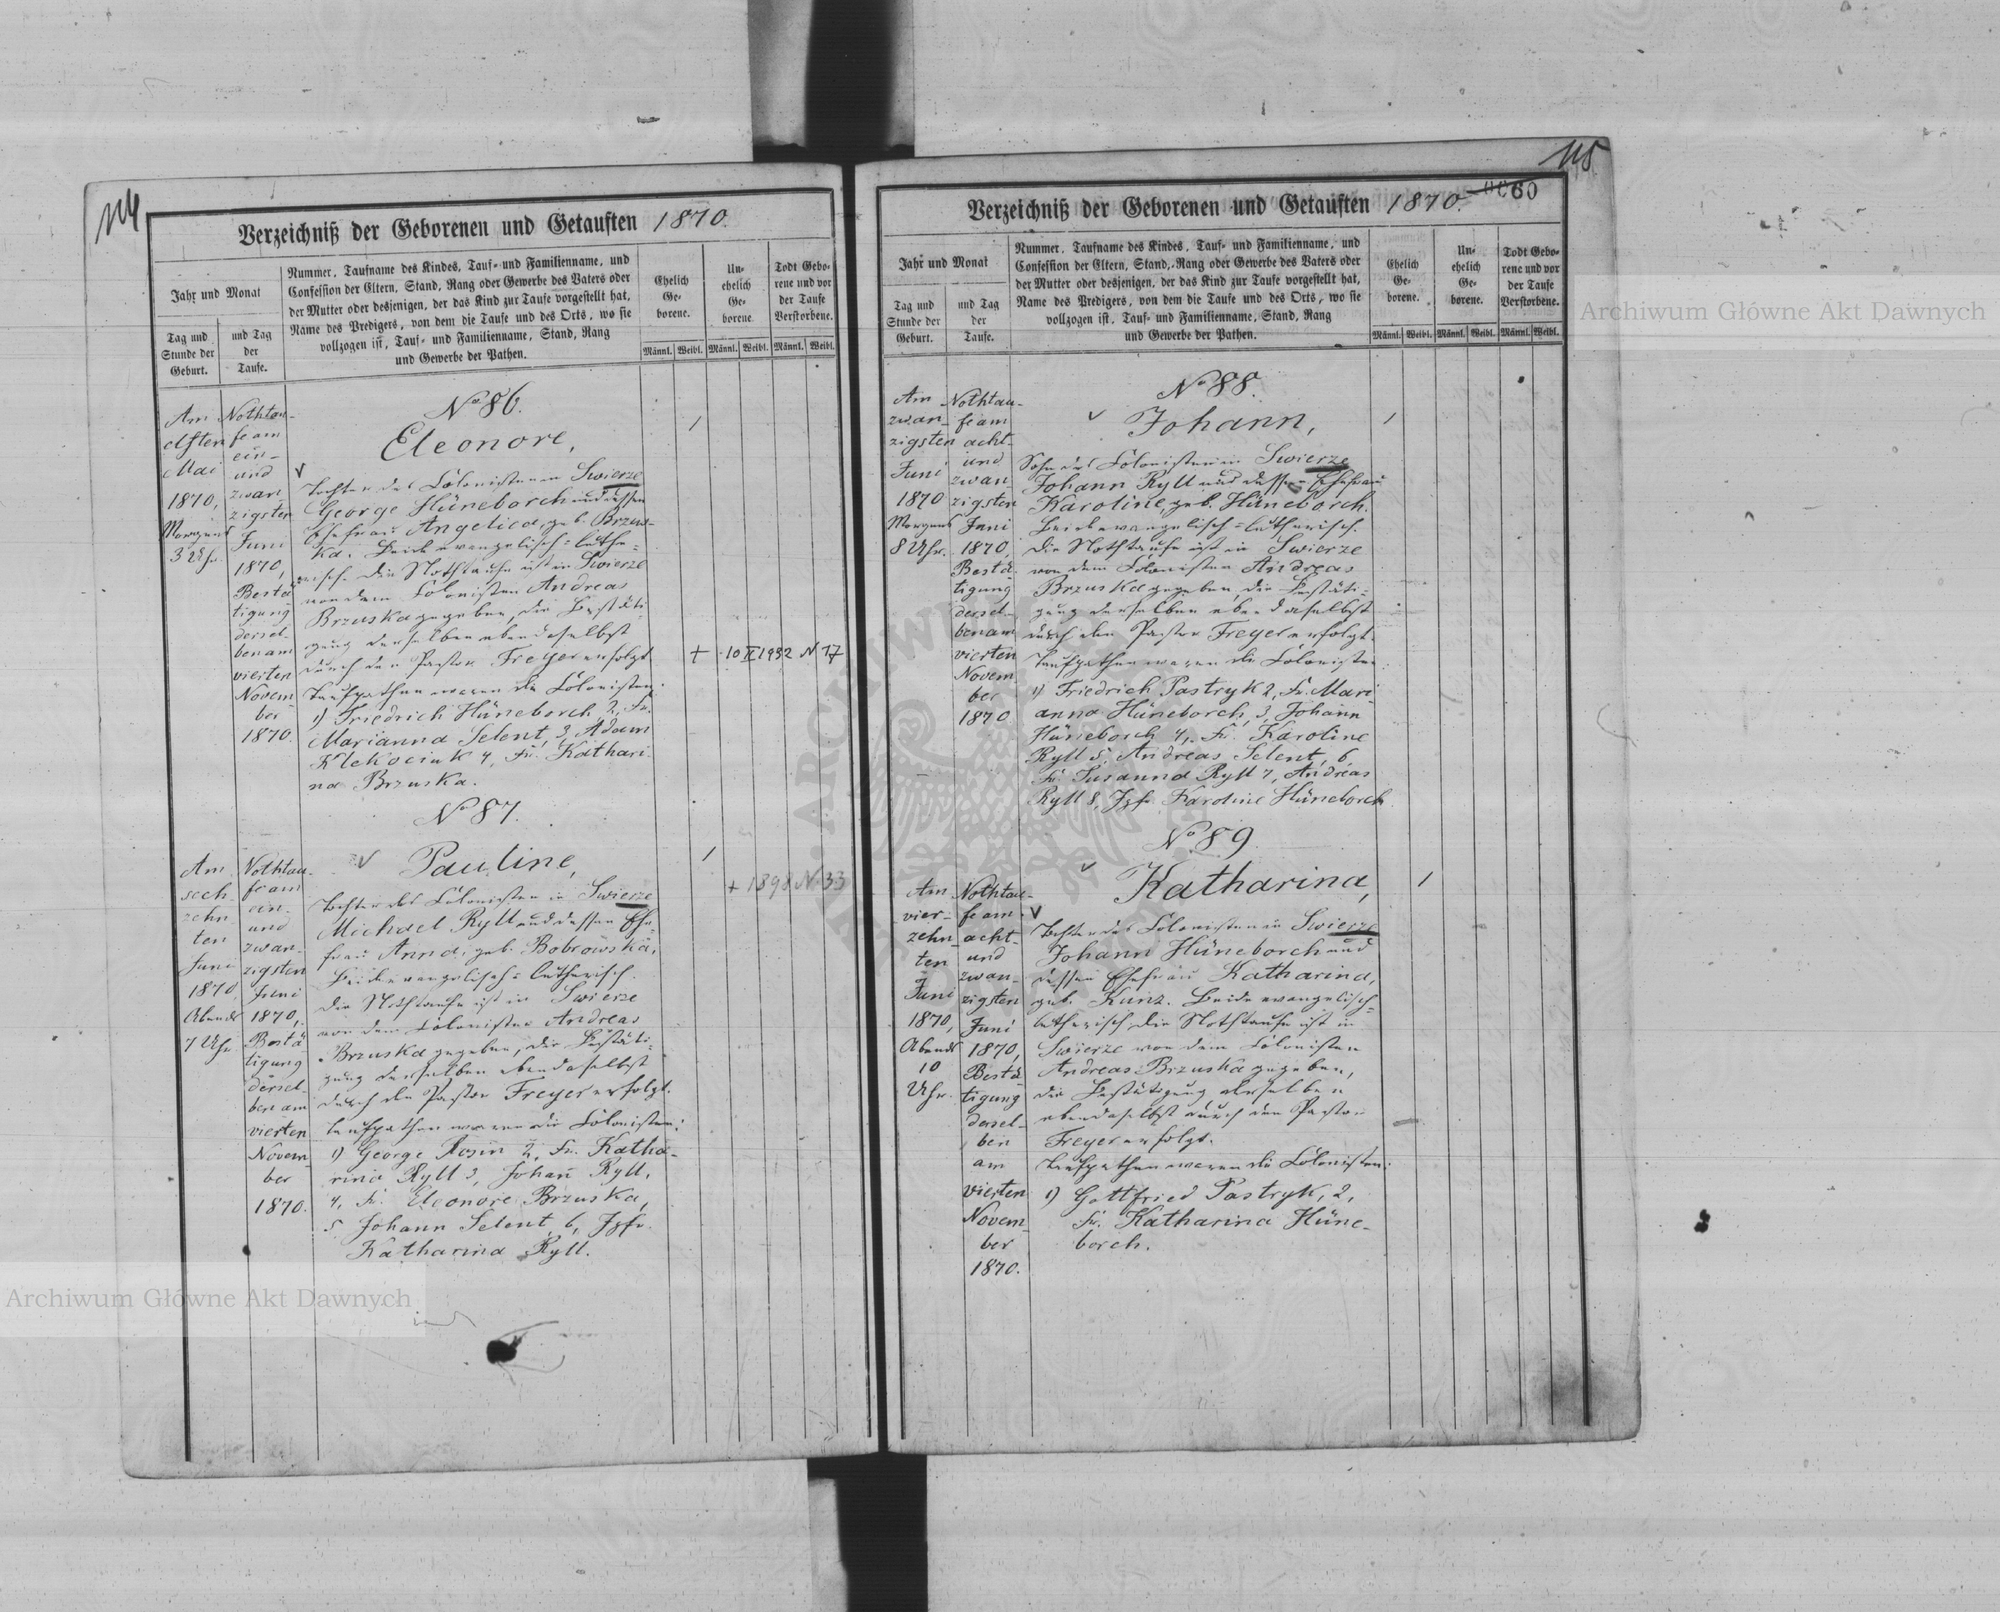 114
Verzeichniß der Geborenen und Getauften 1870.
Jahr und Monat
Tag und Stunde der Geburt.
und Tag der Taufe.
Nummer, Taufname des Kindes, Tauf- und Familienname, und
Confession der Eltern, Stand, Rang oder Gewerbe des Vaters oder
der Mutter oder desjenigen, der das Kind zur Taufe vorgestellt hat,
Name des Predigers, von dem die Taufe und des Orts, wo sie
vollzogen ist, Tauf- und Familienname, Stand, Rang
und Gewerbe der Pathen.
Ehelich Ge-borene.
Un-ehelich Ge-borene.
Todt Gebo-rene und vor der Taufe Verstorbene.
Männl. Weibl. Männl. Weibl. Männl. Weibl.
Am
elften
Mai
1870,
Morgens
3 Uhr.
Nothtau-
fe am
ein-
und
zwan
zigsten
Juni
1870,
Bestä
tigung
dersel-
ben am
vierten
Novem-
ber
1870.
No 86.
Eleonore,
Tochter des Colonisten in Swierze
George Hüneborch und dessen
Ehefrau Angelica, geb. Brzus-
ka. Beide evangelisch-luthe-
risch. Die Nothtaufe ist in Swierze
von dem Colonisten Andreas
Brzuska gegeben, die Bestäti-
gung derselben ebendaselbst
durch den Pastor Freyer erfolgt.
Taufpathen waren die Colonisten:
1) Friedrich Hüneborch, 2, Fr.
Marianna Selent, 3, Adam
Klekociuk 4, Fr. Kathari-
na Brzuska.
1
+ 10 II 1932 N 17
Am
sech-
zehn
ten
Juni
1870,
Abends
7 Uhr
Nothtau-
fe am
ein-
und
zwan-
zigsten
Juni
1870,
Bestä
tigung
dersel-
ben am
vierten
Novem-
ber
1870.
No 87.
Pauline,
Tochter des Colonisten in Swierze
Michael Ryll und dessen Ehe-
frau Anna, geb. Bobrowska,
Beide evangelisch-lutherisch.
Die Nothtaufe ist in Swierze
von dem Colonisten Andreas
Brzuska gegeben, die Bestäti-
gung derselben ebendaselbst
durch den Pastor Freyer erfolgt.
Taufpathen waren die Colonisten:
1) George Rosin 2, Fr. Katha-
rina Ryll 3, Johan̄ Ryll,
4, Fr. Eleonore Brzuska,
5 Johann Selent, 6, Jgfr.
Katharina Ryll.
1
+ 1898 N. 33
115
60
Verzeichniß der Geborenen und Getauften 1870.
Jahr und Monat
Tag und Stunde der Geburt.
und Tag der Taufe.
Nummer, Taufname des Kindes, Tauf- und Familienname, und
Confession der Eltern, Stand, Rang oder Gewerbe des Vaters oder
der Mutter oder desjenigen, der das Kind zur Taufe vorgestellt hat,
Name des Predigers, von dem die Taufe und des Orts, wo sie
vollzogen ist, Tauf- und Familienname, Stand, Rang
und Gewerbe der Pathen.
Ehelich Ge-borene.
Un-ehelich Ge-borene.
Todt Gebo-rene und vor der Taufe Verstorbene.
Männl. Weibl. Männl. Weibl. Männl. Weibl.
Am
zwan-
zigsten
Juni
1870
Morgens
8 Uhr.
Nothtau-
fe am
acht-
und
zwan-
zigsten
Juni
1870,
Bestä-
tigung
dersel-
ben am
vierten
Novem
ber
1870.
No 88.
Johann,
Sohn des Colonisten in Swierze
Johann Ryll und dessen Ehefrau
Karoline, geb. Hüneborch.
Beide evangelisch-lutherisch.
Die Nothtaufe ist in Swierze
von dem Colonisten Andreas
Brzuska gegeben, die Bestäti-
gung derselben ebendaselbst
durch den Pastor Freyer erfolgt.
Taufpathen waren die Colonisten:
1) Friedrich Pastryk 2, Fr. Mari
anna Hüneborch, 3, Johann
Hüneborch 4, Fr. Karoline
Ryll 5, Andreas Selent, 6,
Fr. Susanna Ryll 7, Andreas
Ryll 8, Jgfr. Karoline Hüneborch
1
Am
vier-
zehn
ten
Juni
1870,
Abends
10
Uhr.
Nothtau-
fe am
acht-
und
zwan-
zigsten
Juni
1870,
Bestä
tigung
dersel-
ben
am
vierten
Novem-
ber
1870.
No 89.
Katharina,
Tochter des Colonisten in Swierze
Johann Hüneborch und
dessen Ehefrau Katharina,
geb. Kunz. Beide evangelisch-
lutherisch Die Nothtaufe ist in
Swierze von dem Colonisten
Andreas Brzuska gegeben,
die Bestätigung derselben
ebendaselbst durch den Pastor
Freyer erfolgt.
Taufpathen waren die Colonisten:
1) Gottfried Pastryk, 2,
Fr. Katharina Hüne-
borch.
1
Archiwum Główne Akt Dawnych
Archiwum Główne Akt Dawnych